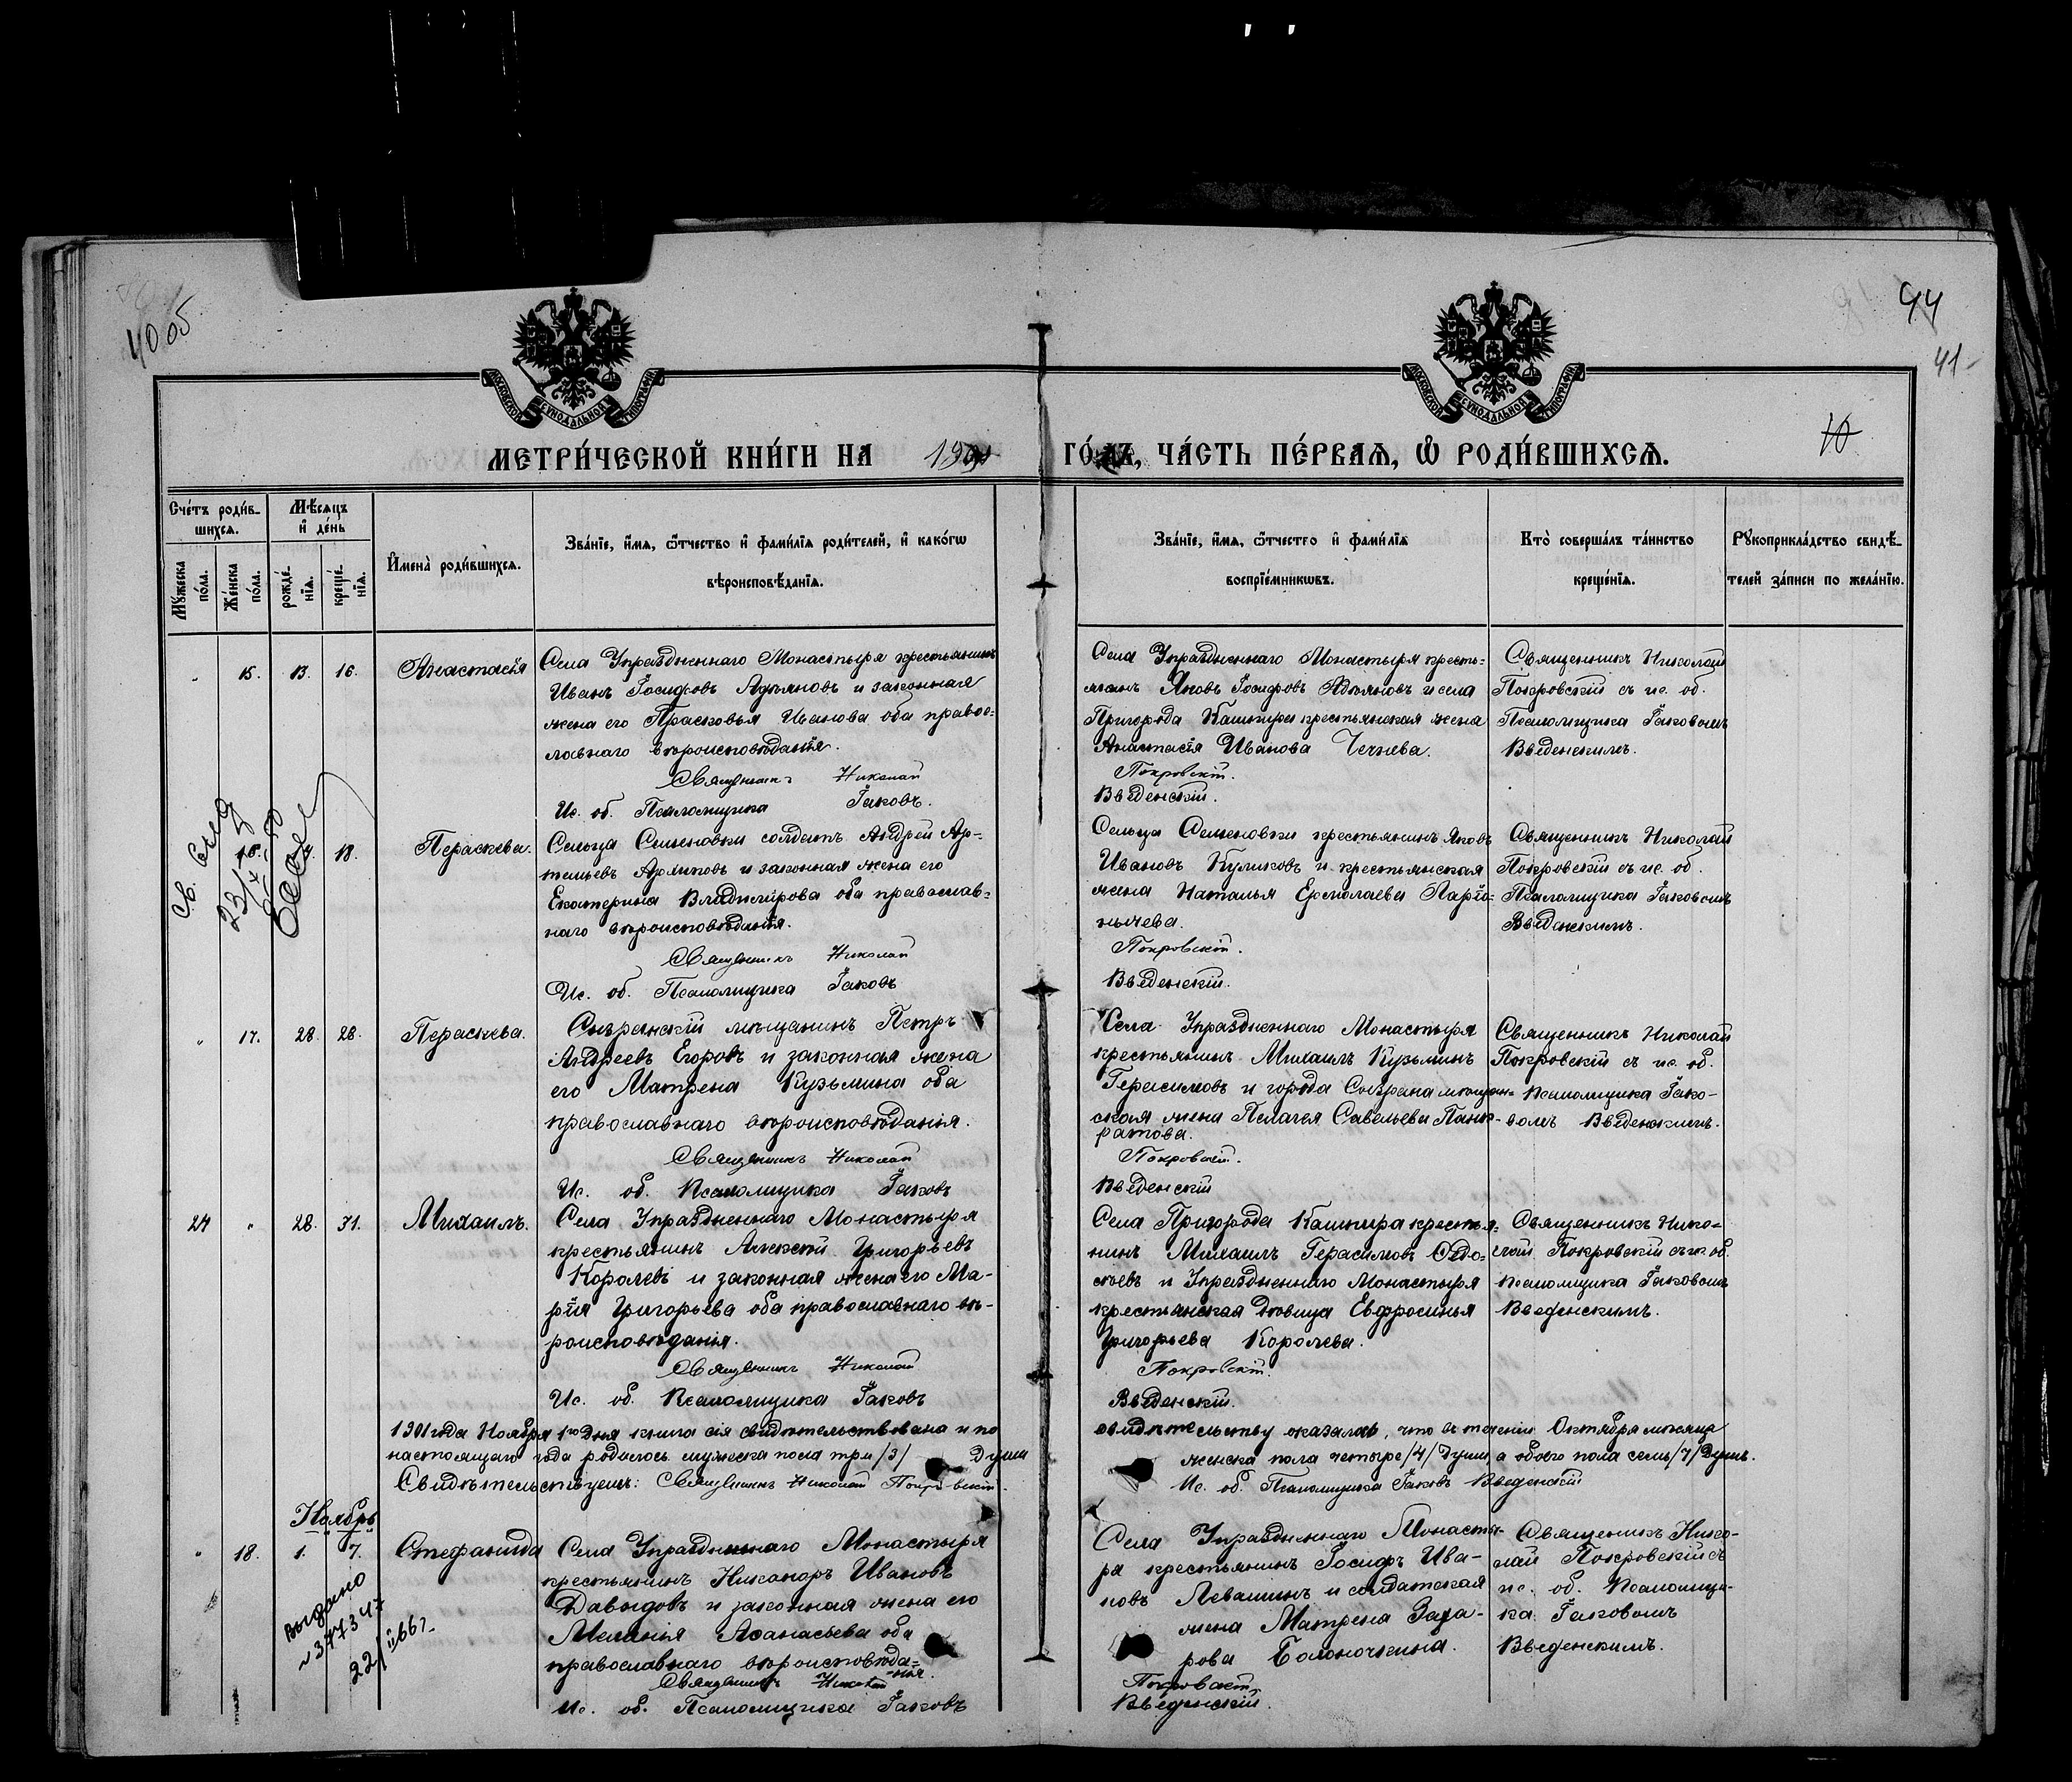 4005
44
41-
10
МОСКОВСКОЙ СУНОДАЛЬНОЙ ТИПОГРАФІИ
МОСКОВСКОЙ СУНОДАЛЬНОЙ ТИПОГРАФІИ
МЕТРИ́ЧЕСКОЙ КНИ́ГИ НА 1901 ГО́ДЪ, ЧА́СТЬ ПЕ́РВАѦ, Ѡ҆ РОДИ́ВШИХСѦ.
Сче́тъ роди́в-
шихсѧ.
Мѣ́сѧцъ
и҆ де́нь
Мꙋ́жеска по́ла.
Же́нска по́ла.
рожде́-нїѧ.
креще́-нїѧ.
И҆мена̀ роди́вшихсѧ.
Зва́нїе, и҆́мѧ, ѻ҆́тчество и҆ фами́лїѧ роди́телей, и҆ како́гѡ
вѣроисповѣ́данїѧ.
Зва́нїе, и҆́мѧ, ѻ҆́тчество и҆ фами́лїѧ
воспрїе́мникѡвъ.
Кто̀ соверша́лъ та́инство
креще́нїѧ.
Рꙋкоприкла́дство свидѣ́-
телей за́писи по жела́нїю.
15. 13. 16. Анастасія
Села Упраздненнаго Монастыря крестьянинъ
Иванъ Іосифовъ Адъяновъ и законная
жена его Прасковья Иванова оба правос=
лавнаго вѣроисповѣданія.
Священникъ Николай
Ис. об. Псаломщика Іаковъ.
Села Упраздненнаго Монастыря кресть=
янинъ Яковъ Іосифовъ Адъяновъ и села
Пригорода Кашпира крестьянская жена
Анастасія Иванова Чечнева.
Покровскій.
Введенскій.
Священникъ Николай
Покровскій съ ис. об.
Псаломщика Іаковомъ
Введенскимъ.
18. Параскева.
Сельца Семеновки солдатъ Андрей Ар=
темьевъ и законная жена его
Екатерина Владимірова оба православ=
наго вѣроисповѣданія.
Священникъ Николай
Ис. об. Псаломщика Іаковъ
Сельца Семеновки крестьянинъ Яковъ
Ивановъ Куликовъ и крестьянская
жена Наталья Ермолаева Ларіо=
нычева.
Покровскій.
Введенскій.
Священникъ Николай
Покровскій съ ис. об.
Псаломщика Іаковомъ
Введенскимъ.
17. 28. 28. Параскева.
Сызранскій мѣщанинъ Петръ
Андреевъ Егоровъ и законная жена
его Матрена Кузьмина оба
православнаго вѣроисповѣданія.
Священникъ Николай
Ис. об. Псаломщика Іаковъ
Села Упраздненнаго Монастыря
крестьянинъ Михаилъ Кузьминъ
Герасимовъ и города Сызрана мѣщан=
ская жена Пелагея Савельева Панк-
ратова.
Покровскій.
Введенскій
Священникъ Николай
Покровскій съ ис. об.
Псаломщика Іако-
вомъ Введенскимъ.
24 28. 31. Михаилъ.
Села Упраздненнаго Монастыря
крестьянинъ Алексѣй Григорьевъ
Королевъ и законная жена его Ма-
рія Григорьева оба православнаго вѣ-
роисповѣданія.
Священникъ Николай
Ис. об. Псаломщика Іаковъ
Села Пригорода Кашпира крестья-
нинъ Михаилъ Герасимовъ Ѳедо=
сѣевъ и Упраздненнаго Монастыря
крестьянская дѣвица Евфросинья
Григорьева Королева.
Покровскій.
Введенскій.
Священникъ Нико-
лай Покровскій съ ис. об.
псаломщика Іаковомъ
Введенскимъ.
1901 года Ноября 1го дня книга сія свидѣтельствована и по свидѣтельству оказалось, что въ теченіи Октября мѣсяца
настоящаго года родилось мужеска пола три /3/ души женска пола четыре /4/ души, а обоего пола семь /7/ душъ.
Свидѣтельствуемъ: Священникъ Николай Покровскій. Ис. об. Псаломщика Іаковъ Введенскій
Ноябрь
18. 1. 7. Стефанида
Села Упраздненнаго Монастыря
крестьянинъ Никаноръ Ивановъ
Давыдовъ и законная жена его
Меланья Аѳанасьева оба
православнаго вѣроисповѣда=
нія.
Священникъ Николай
Ис. об. Псаломщика Іаковъ
Села Упраздненнаго Монасты-
ря крестьянинъ Іосифъ Ива-
новъ Левашинъ и солдатская
жена Матрена Заха-
рова Болоночкина.
Покровскій
Введенскій.
Священникъ Нико-
лай Покровскій съ
ис. об. Псаломщи-
ка Іаковомъ
Введенскимъ.
Выдано
22/II 66г.